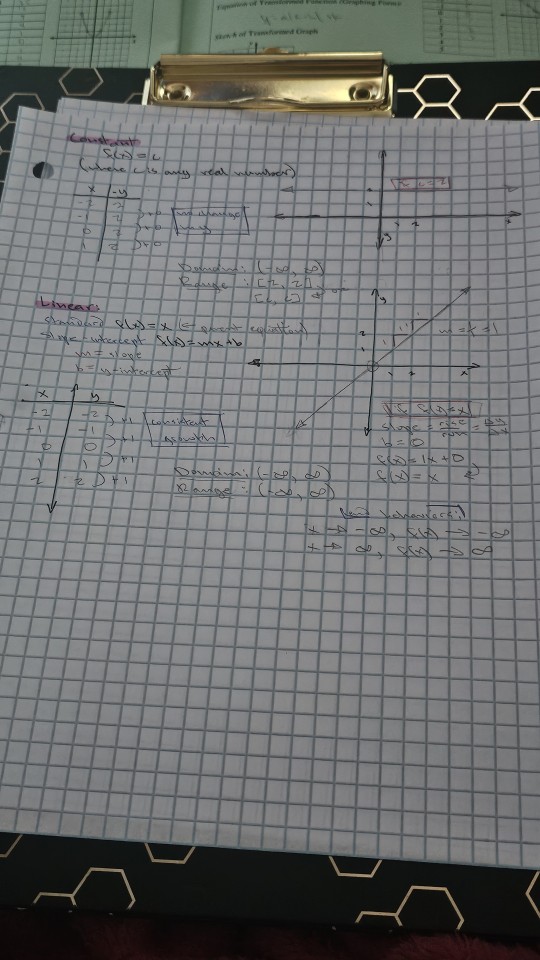 Equation of Transformed Function (Graphing Form):
Sketch of Transformed Graph
Constant
f(x) = c
(where c is any real number)
x y
-2 2
-1 2
0 2
1 2
+0
+0
+0
no change
in y
if c = 2
y
x
Domain: (-∞, ∞)
Range: [2, 2] or
[c, c]
Linear:
standard f(x) = x (= parent equation)
slope-intercept f(x) = mx+b
m = slope
b = y-intercept
x y
-2 -2
-1 -1
0 0
1 1
2 2
+1
+1
+1
+1
consistent
growth
Domain: (-∞, ∞)
Range: (-∞, ∞)
y
x
1 2
if f(x) = x
slope = rise/run = Δy/Δx
b = 0
f(x) = 1x + 0
f(x) = x
End behaviors:
x → -∞, f(x) → -∞
x → ∞, f(x) → ∞